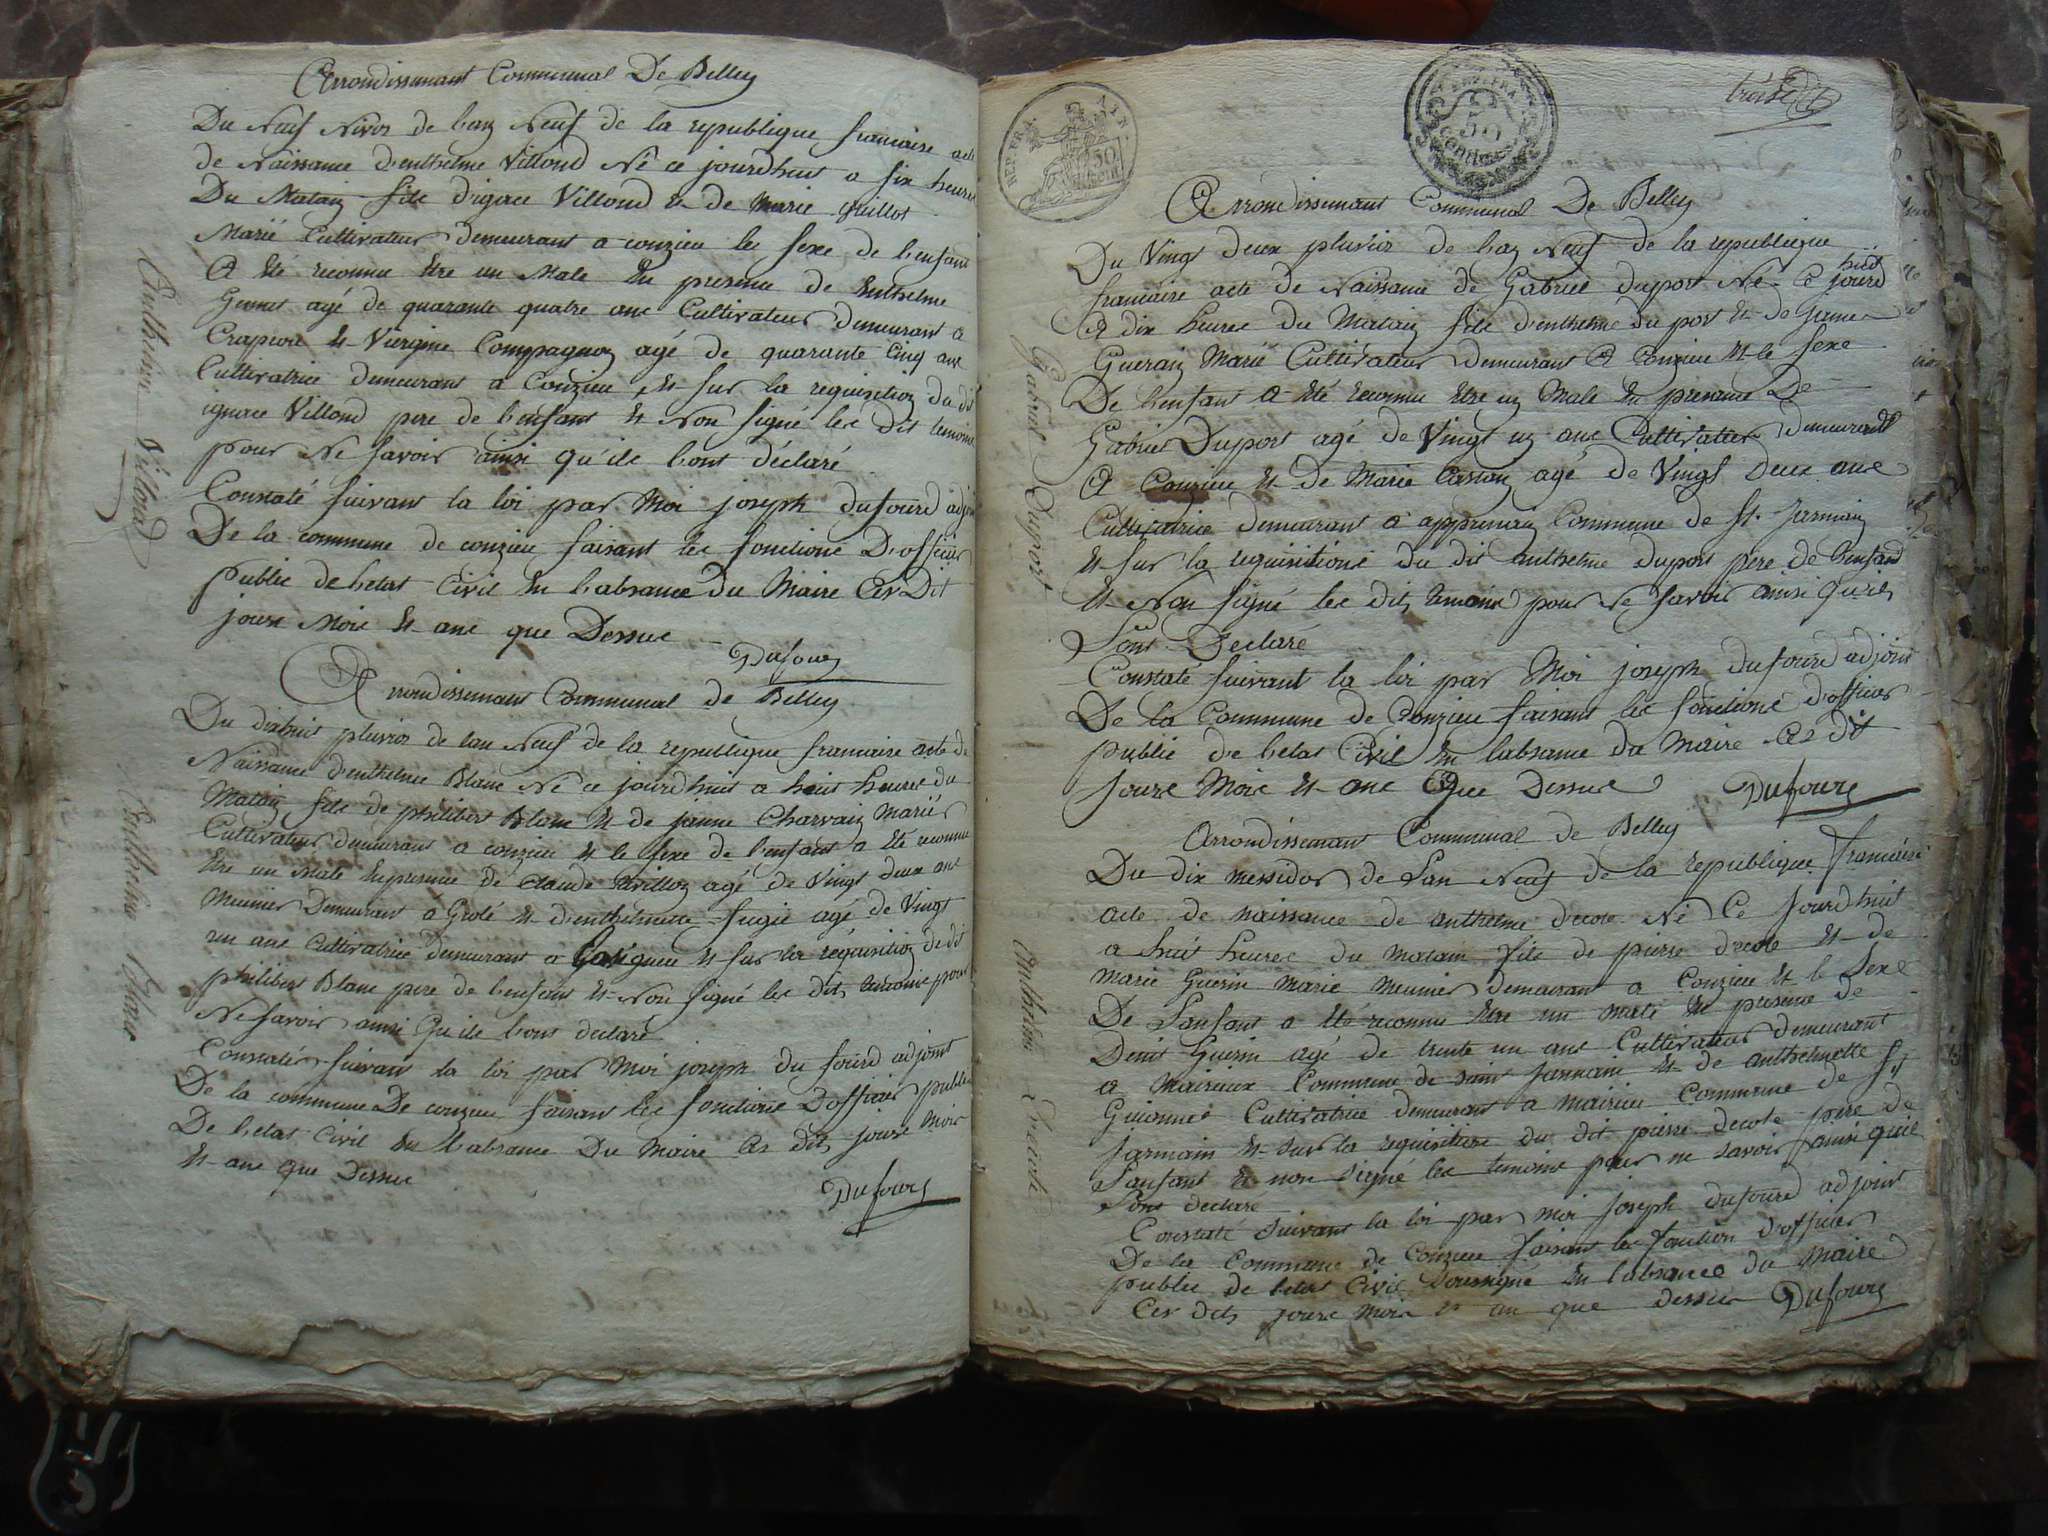 Arrondissemant Communal De Belley
Du Neuf Nivos de lan Neuf de la republique francaise acte
de Naissance d'enthelme Villond Né ce jourdhuit a six heures
Du Matain fils d'ignace Villond et de Marie Guillot
Marié Cultivateur demeurant a conzieu le sexe de lenfant
A été reconnu être un Male En presence de Enthelme
agé de quarante quatre ans Cultivateur demeurant a
Crapieu et Viergine Compagnon agé de quarante Cinq ans
Cultivatrice demeurant a Conzieu et sur la requisition du dit
ignace Villond pere de lenfant et Non signé les dit temoins
pour Ne savoir ainsi qu'ils l'ont déclaré
Constaté suivant la loi par Moi joseph dufourd adjoint
De la commune de conzieu faisant les fonctions D'officier
public de letat Civil En labsance du Maire Ces Dit
jours Mois et ans que Dessus
Dufour
Arrondissemant Communal de Belley
Du dixhuit pluvios de lan Neuf de la republique francaise acte de
Naissance d'enthelme Blanc Né ce jourdhuit a huit heures du
Matain fils de philibert Blanc et de janne Charvain Mariés
Cultivateur demeurant a conzieu et le sexe de lenfant a été reconnu
être un Male En presence de Claude agé de Vingt deux ans
Meunier Demeurant a Grolé et d'enthelmette fugie agé de Vingt
un ans Cultivatrice demeurant a et sur la requisition de dit
philibert Blanc pere de lenfant et Non signé les dits temoins pour
Ne savoir ainsi Qu'ils l'ont declaré
Constatér suivant la loi par Moi joseph du fourd adjoint
De la commune De conzieu faisant les fonctions D'officier public
De letat Civil En labsance Du Maire Ces dits jours Mois
et ans que Dessus
Dufourd
Anthelme Villond
Enthelme Blanc
REP. FRA. AIN
50
REP. FRA.
50
Centimes
treise
Arrondissemant Communal De Belley
Du Vingt deux pluvios de lan Neuf de la republique
francaise acte de Naissance de Gabriel duport Né Ce jourd
huit
A dix heures du Matain fils d'enthelme du port et de janne
Guerain Marié Cultivateur demeurant A Conzieu et le sexe
De lenfant A été reconnu être un Male En presence De
Gabriel Duport agé de Vingt un ans Cultivateur demeurant
A Conzieu et de Marie agé de Vingt deux ans
Cultivatrice demeurant a appremain Commune de St. Jarmain
et sur la requisitions du dit anthelme duport pere de lenfant
et Non signé les dits temoins pour Ne savoir ainsi Qu'ils
Sont Declaré
Constaté suivant la loi par Moi joseph dufourd adjoint
De la Commune de Conzieu faisant les fonctions d'officier
public de letat Civil En labsance du Maire Ces dit
jours Mois et ans Que Dessus
Dufourd
Arrondissemant Communal de Belley
Du dix messidor de Lan Neuf de la republique francaise
acte de naissance de anthelme decote Né Ce jourdhuit
a huit heures du matain fils de pierre decote et de
Marie Guerin Marié Meunier demeurant a Conzieu et le Sexe
De Lanfant a été reconnu être un male En presence de
Denis Guerin agé de trente un ans Cultivateur demeurant
a Mairieux Commune de saint Jarmain et de anthelmette
Guionnet Cultivatrice demeurant a Mairieu Commune de St
Jarmain et sur la requisitions du dit pierre decote pere de
Lanfant et non signé les temoins pour ne savoir ainsi quil
Sont declaré
Constaté suivant la loi par moi joseph dufourd adjoint
De la Commune de Conzieu faisant les fonction d'officier
public de letat Civil Soussigné En labsance du Maire
Ces dits jours Mois et an que dessus Dufourd
Gabriel Duport
Anthelme Decote